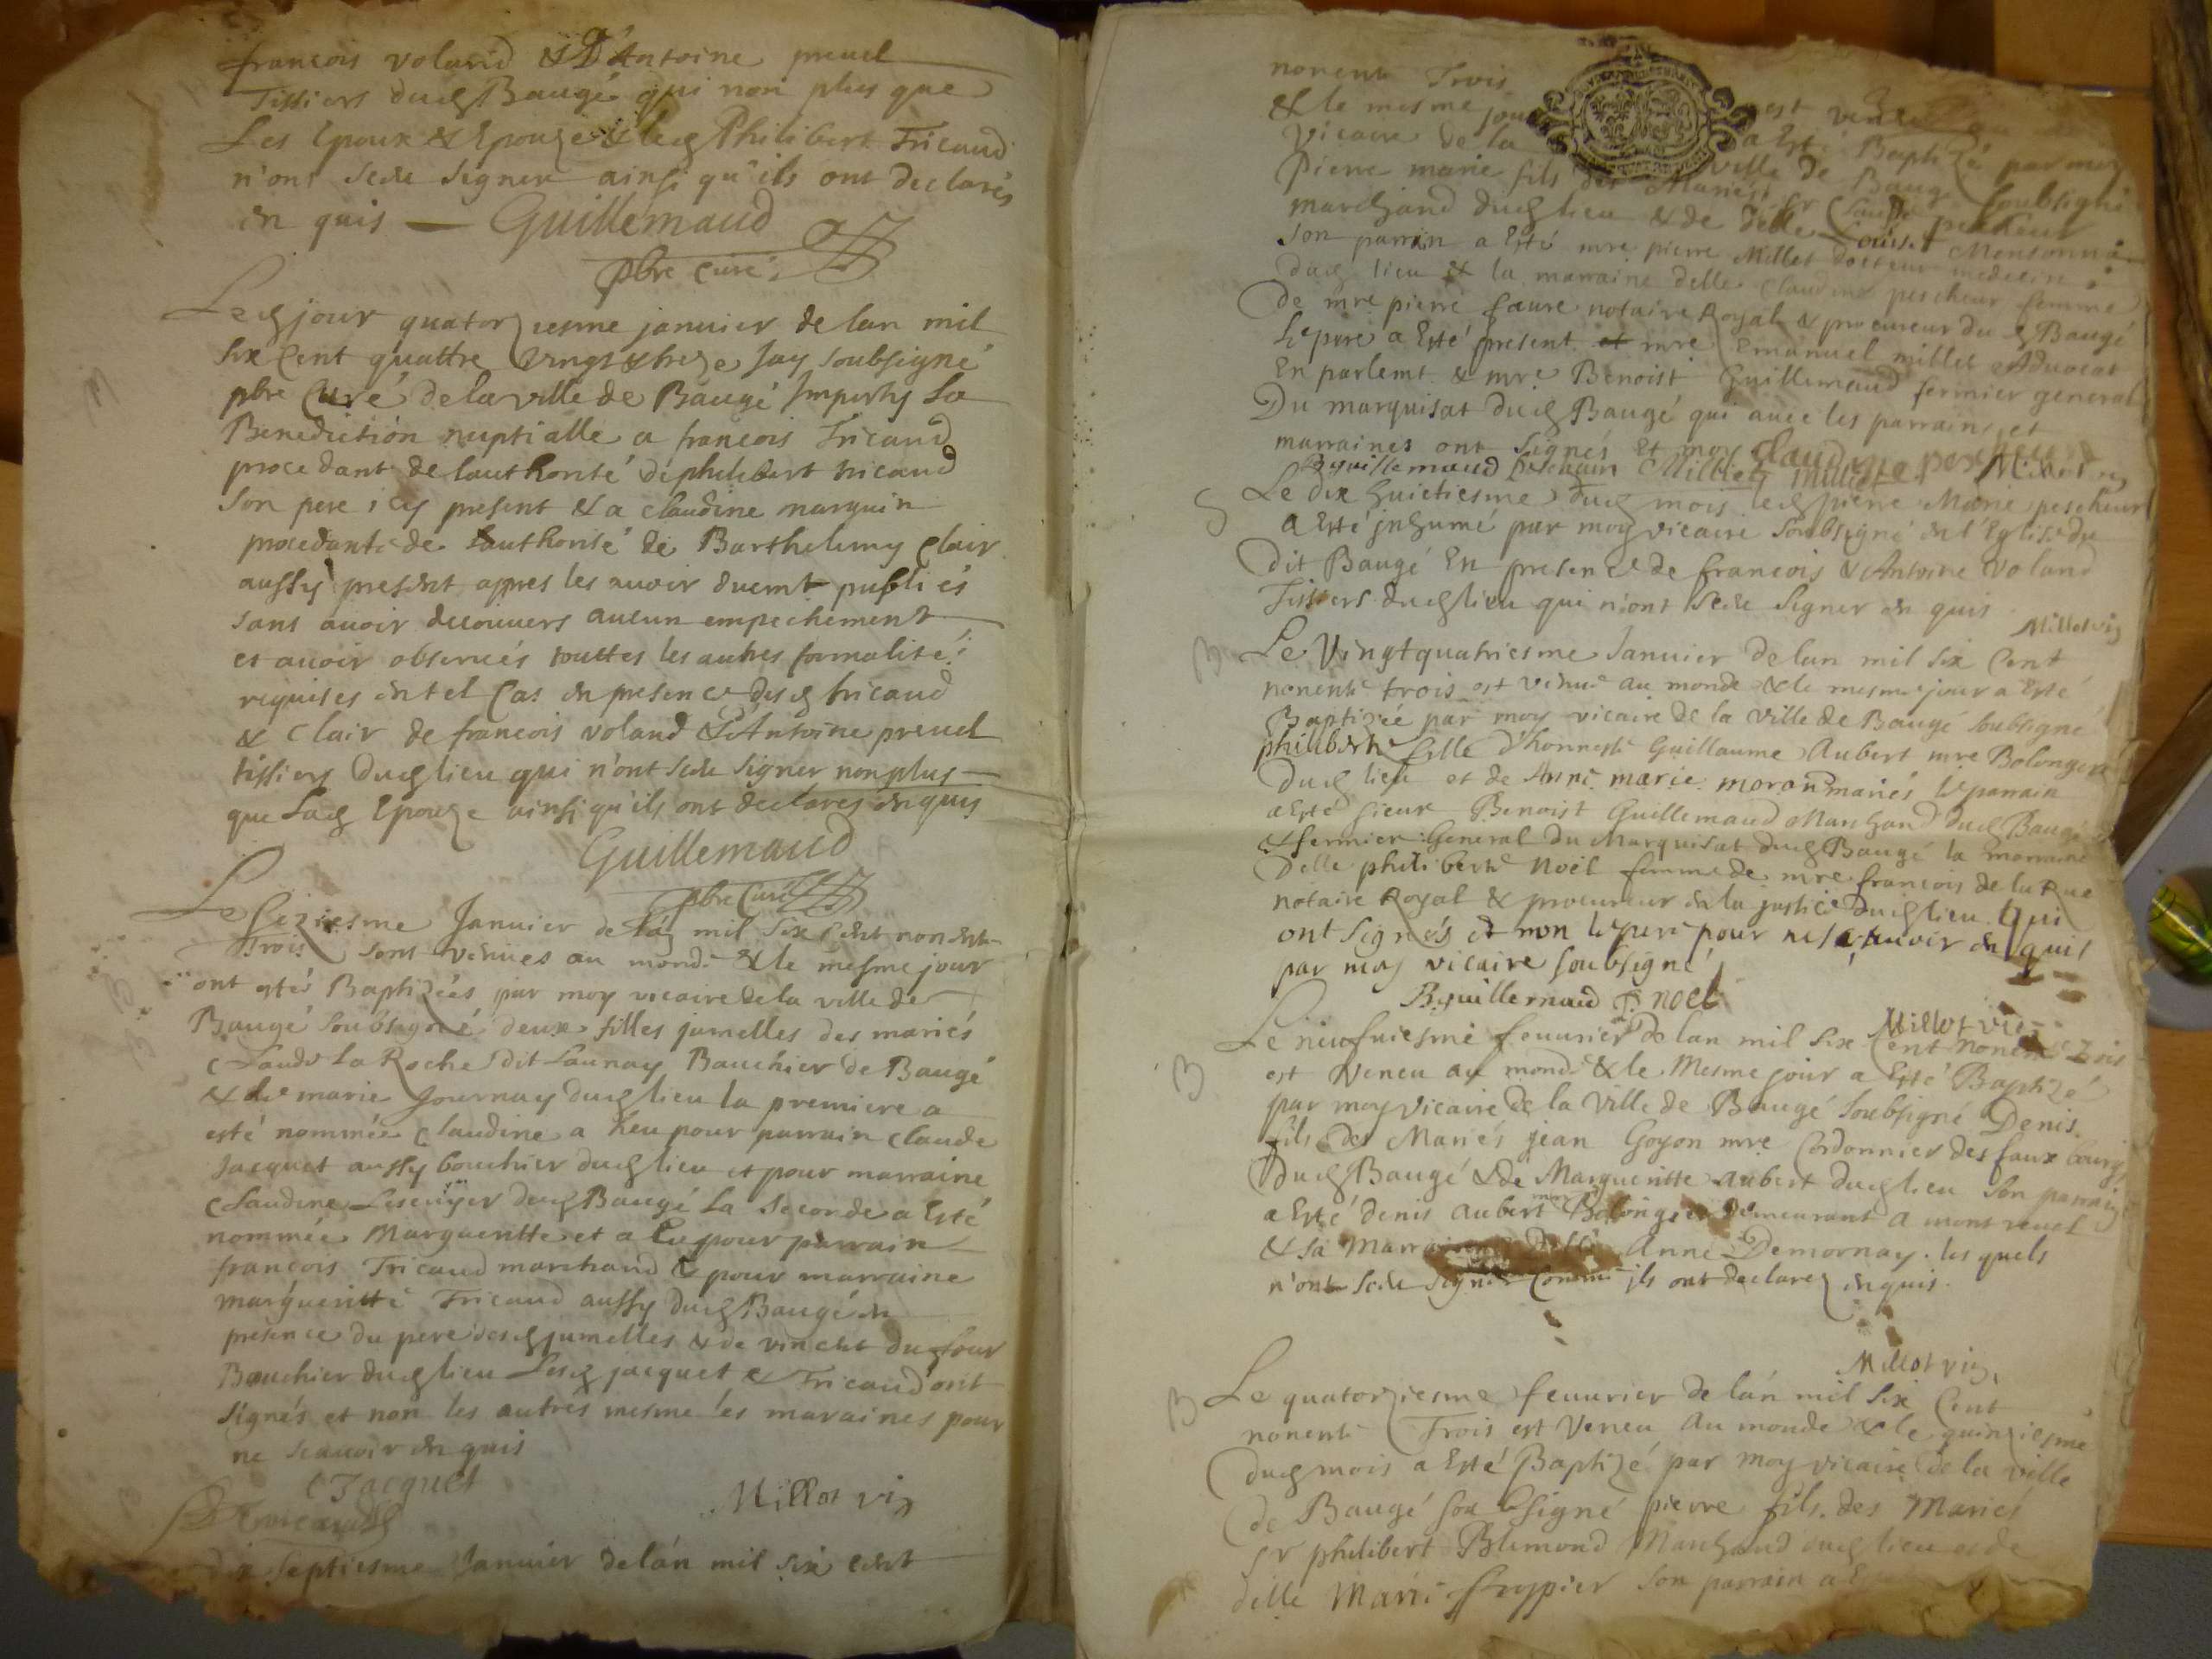 françois voland & Antoine preuel
Tissiers dud Baugé qui non plus que
Les Epoux & Epouze & led Philibert Tricaud
n'ont sceu signer ainsi qu'ils ont declarés
en quis — Guillemaud
pbre curé
Led jour quatorziesme januier de lan mil
six Cent quattre vingt & treze Jay soubsigné
pbre Curé de la ville de Baugé Imparty La
Benediction nuptialle a françois Tricaud
procedant de lauthorité de philibert tricaud
son pere icy present & a claudine marguin
procedante de lauthorité de Barthelemy Clair
aussy present appres les auoir duemt publiés
sans auoir decouuers aucun empechement
et auoir obserués touttes les autres formalités
requises en tel Cas en presence desd tricaud
& Clair de françois voland & Antoine preuel
tissiers dud lieu qui n'ont sceu signer non plus
que Lad Epouze ainsi qu'ils ont declares enquis
Guillemaud
pbre Curé
Le seziesme Januier de lan mil six Cent nonente
Trois sont venues au monde & le mesme jour
ont estés Baptizées par moy vicaire de la ville de
Baugé soubsigné deux filles jumelles des mariés
Claude La Roche dit Launay Bouchier de Baugé
& de marie Journay dud lieu la premiere a
esté nommée Claudine a heu pour parrain Claude
Jacquet aussy bouchier dud lieu et pour marraine
Claudine Lescuyer dud Baugé La seconde a Esté
nommée Margueritte et a Eu pour parrain
françois Tricaud marchand & pour marraine
margueritte Tricaud aussy dud Baugé en
presence du pere desd jumelles & de vincent dufour
Bouchier dud lieu Lesd jacquet & Tricaud ont
signés et non les autres mesme les maraines pour
ne scauoir enquis
C Jacquet
Millot vic
dix septiesme Januier de lan mil six cent
nonente Trois est venu
& le mesme jour a Esté Baptizé par moy
Vicaire de la ville de Baugé soubsigné
Pierre marie fils des Mariés Sr Claude pescheur
marchand dud lieu & de delle Louise Monsonna
son parrin a Esté mre pierre Millet docteur medecin
dud lieu & la marraine delle Claudine pescheur femme
de mre pierre faure notaire Royal & procureur dud Baugé
Le pere a Esté present et mre Emanuel millet Aduocat
En parlemt & mre Benoist Guillemaud fermier general
Du marquisat dud Baugé qui auec les parrains et
marraines ont signés Et moy Claudine pescheur
Bguillemaud Millet Millot vic
Le dix huictiesme dud mois led pierre Marie pescheur
a Esté inhumé par moy vicaire soubsigné en l'Eglise du
dit Baugé En presence de françois & Antoine voland
Tissiers dud lieu qui n'ont sceu signer en quis
Millot vic
Le Vingtquatriesme Januier de lan mil six Cent
nonente trois est venue au monde & le mesme jour a Esté
Baptizée par moy vicaire de la ville de Baugé soubsigné
philiberte fille d'honneste Guillaume Aubert mre Bolonger
dud lieu et de Anne marie moran mariés le parrain
a Esté sieur Benoist Guillemaud Marchand dud Baugé
& fermier General du Marquisat dud Baugé la marraine
Delle philiberte Noël femme de mre françois de la Rue
notaire Royal & procureur en la justice dud lieu Qui
ont signés et non le pere pour ne scauoir en quis
par moy vicaire soubsigné
Bguillemaud P. noel
Millot vic
Le neufuiesme feuurier de lan mil six Cent nonente Trois
est Veneu au monde & le Mesme jour a Esté Baptizé
par moy Vicaire de la Ville de Baugé soubsigné Denis
fils des Mariés jean Goyon mre Cordonnier des faux bourgs
Dud Baugé & de Margueritte aubert dud lieu son parrain
a Esté denis aubert mre Bolonger Demeurant a montreuel
& sa Marraine Anne Demornay lesquels
n'ont sceu signer Comme ils ont declarez enquis
Millot vic
Le quatorziesme feuurier de lan mil six Cent
nonente Trois est Veneu au monde & le quinziesme
dud mois a Esté Baptizé par moy vicaire de la ville
de Baugé soubsigné pierre fils des Mariés
Sr philibert Blimond Marchand dud lieu & de
delle Marie son parrain a